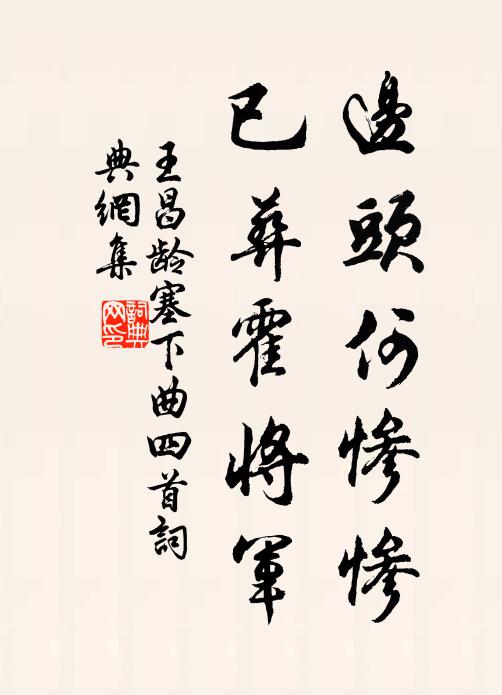 邊頭何慘慘
已葬霍將軍
王昌龄塞下曲四首詞
典網集
詞典
网印